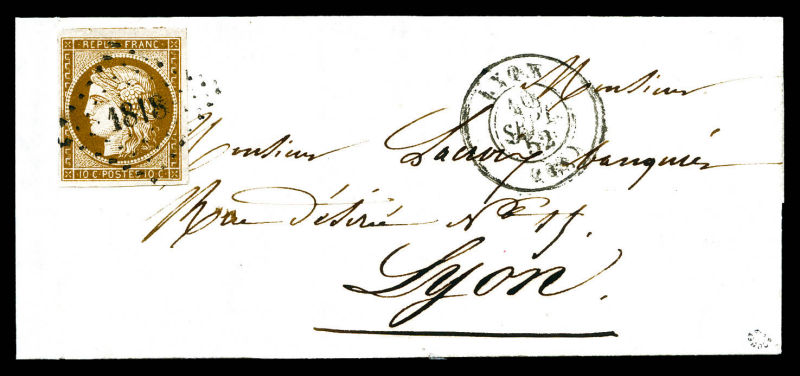 REPUB FRANC
1818
10 C·POSTES 10 C
LYON
SEPT
52
(68)
Monsieur
Monsieur Lacroix banquier
Rue désirée No 15.
Lyon.